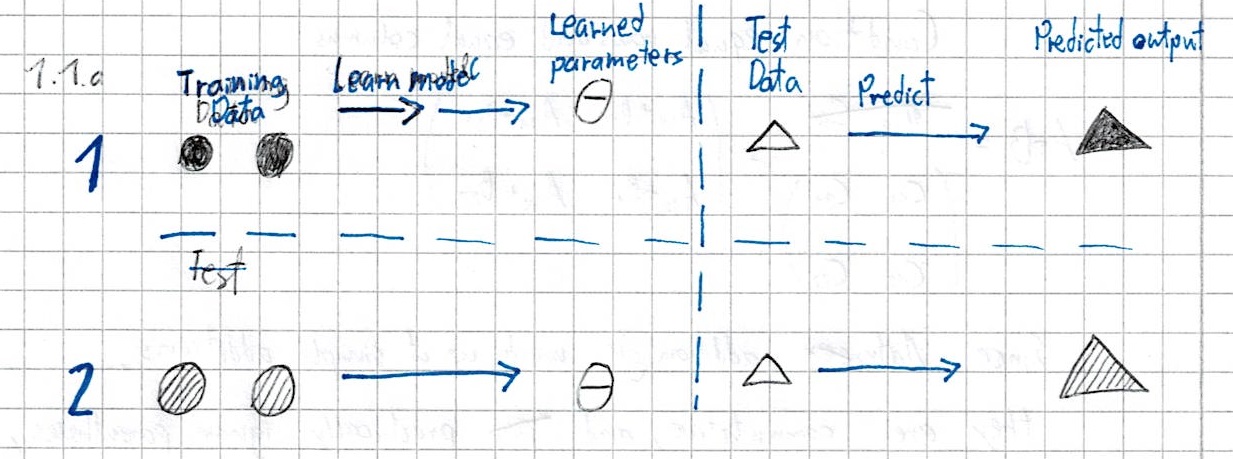 1.1.a
Training
Data
Learn model
Learned
parameters
θ
Test
Data
Predict
Predicted output
1
Test
2
θ